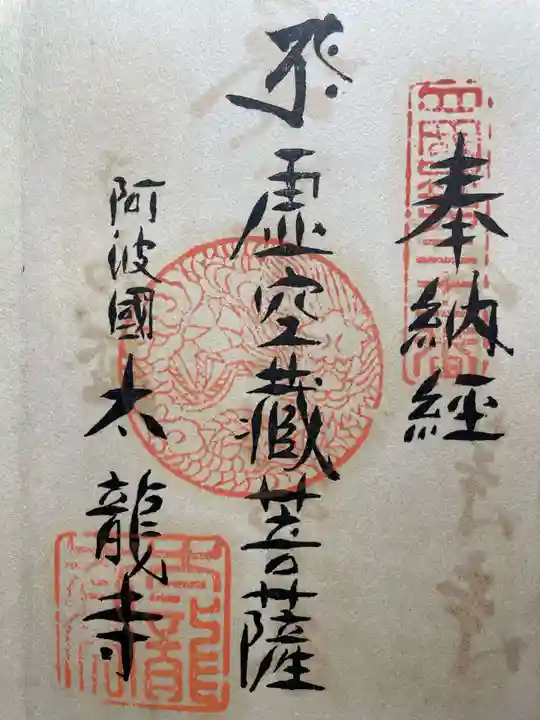 奉納経
虚空蔵菩薩
阿波國太龍寺